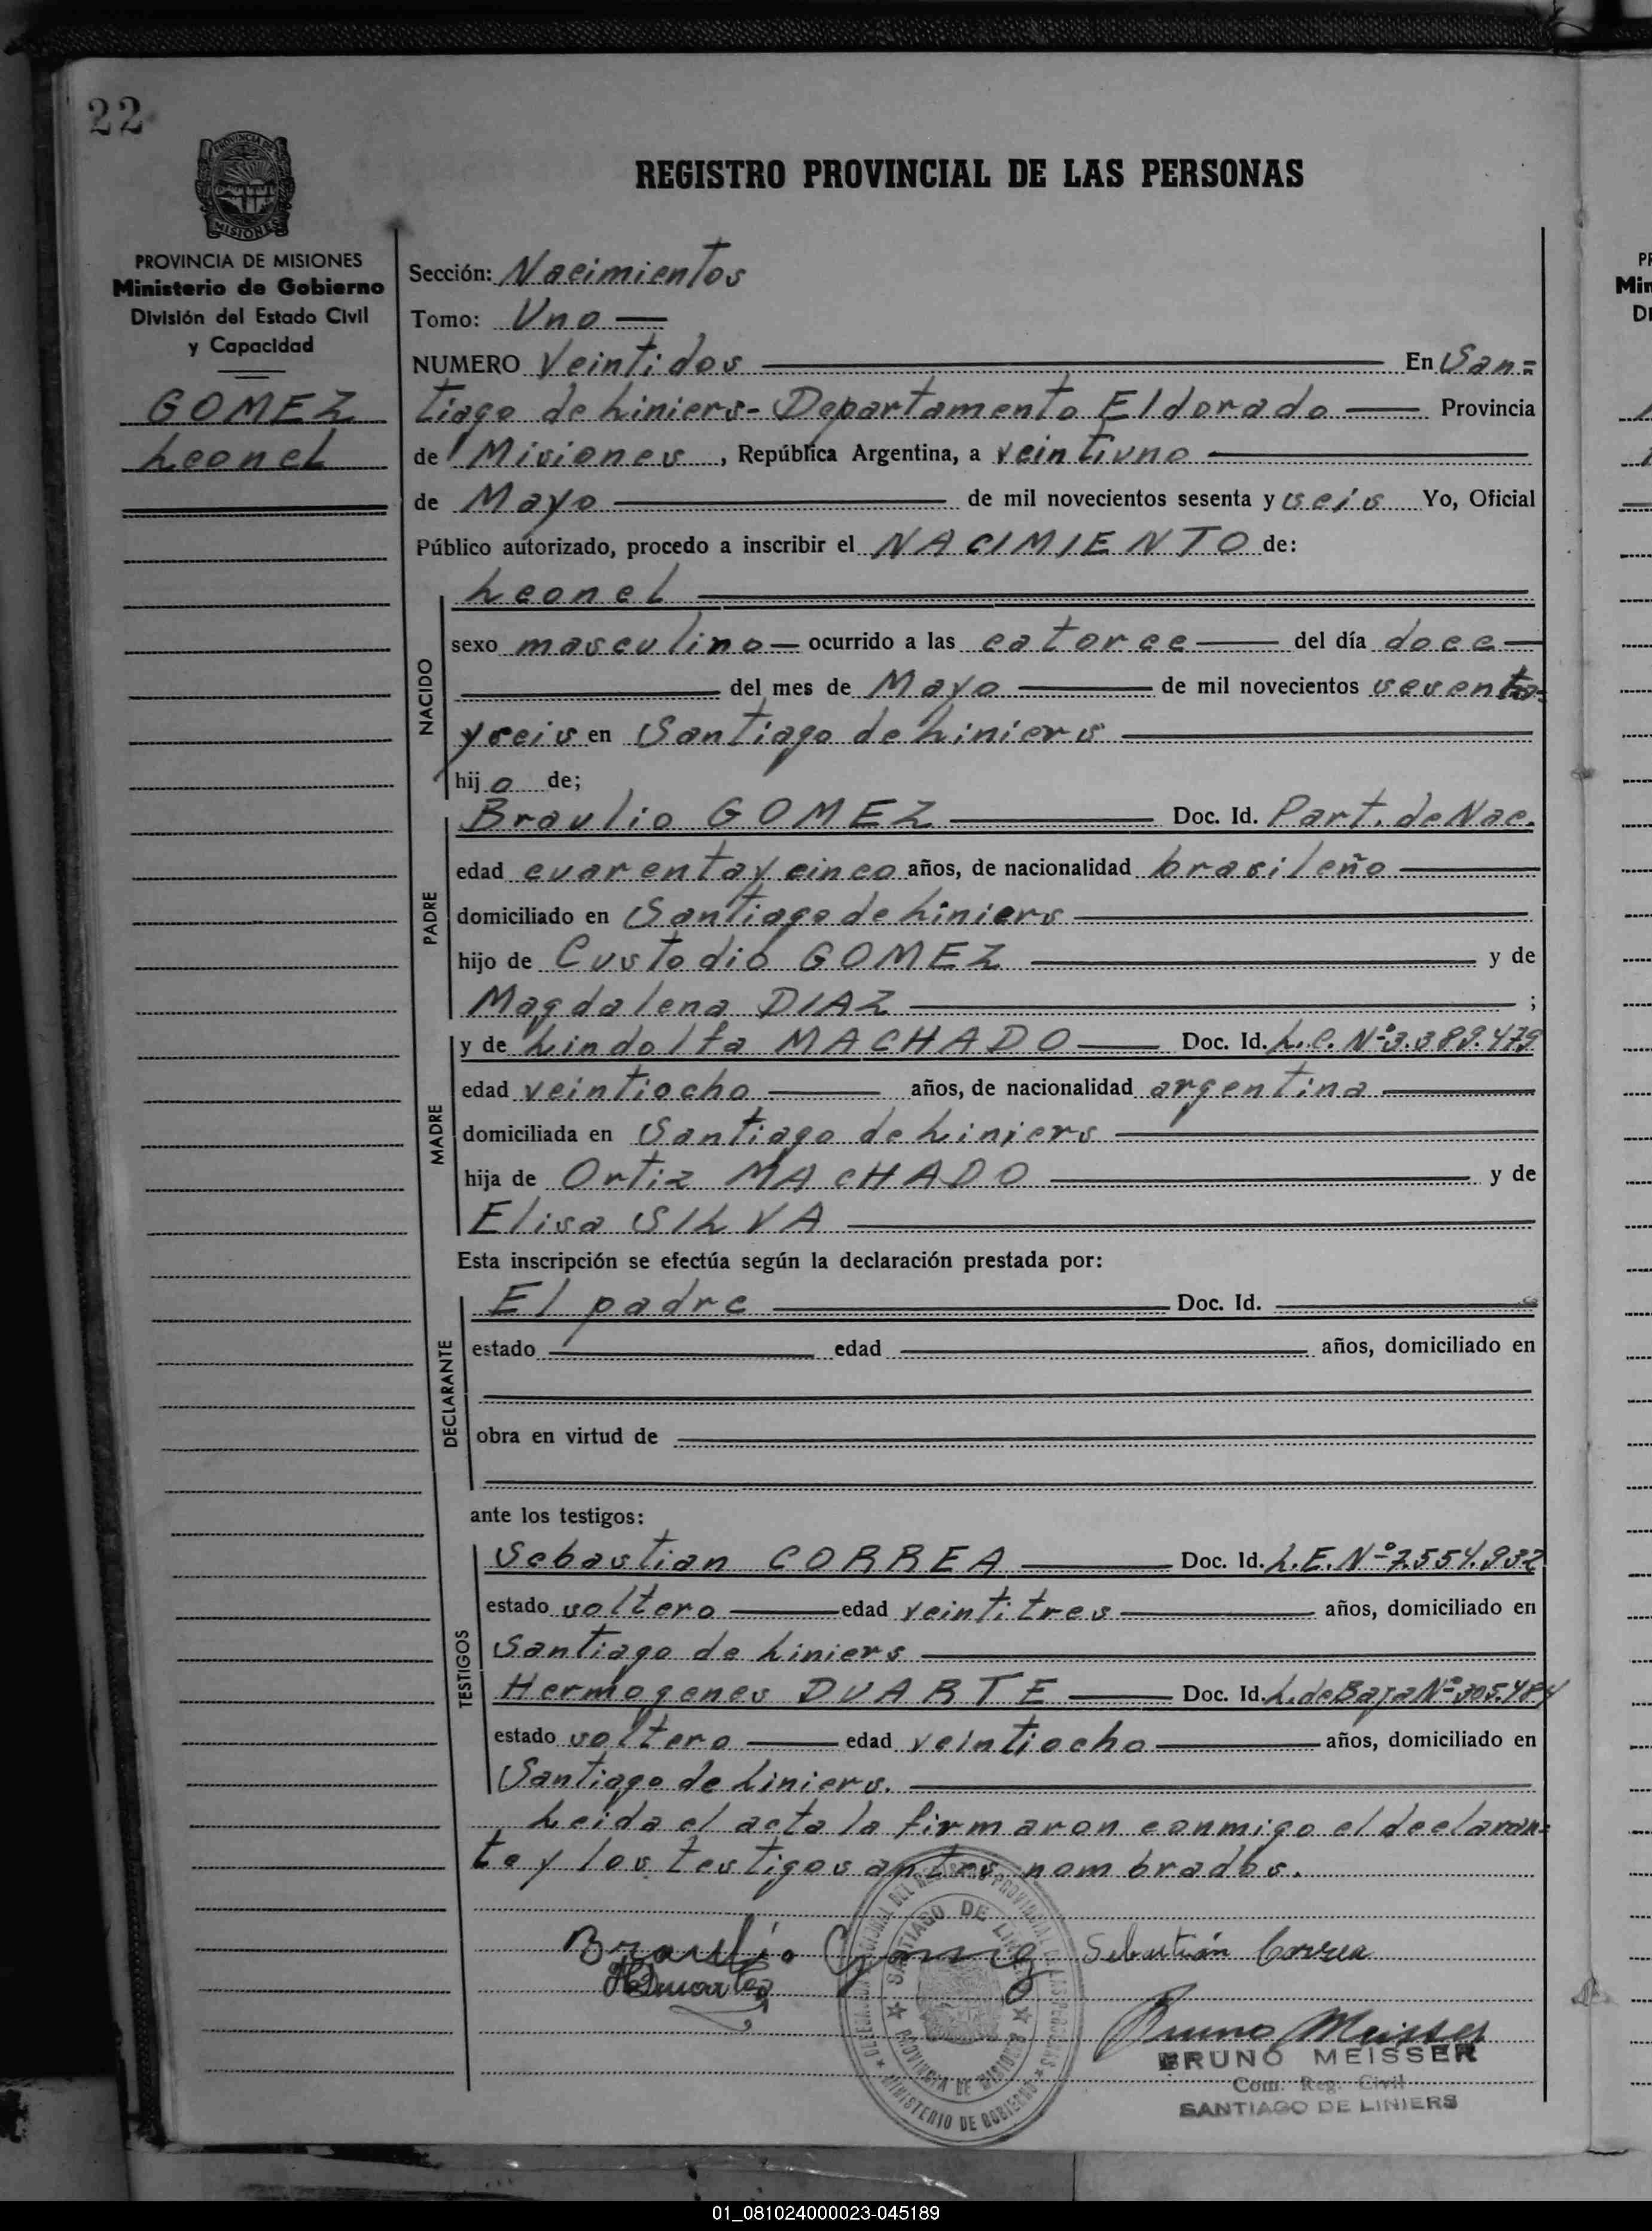 22
PROVINCIA DE MISIONES
REGISTRO PROVINCIAL DE LAS PERSONAS
PROVINCIA DE MISIONES
Ministerio de Gobierno
División del Estado Civil
y Capacidad
GOMEZ
Leonel
Sección: Nacimientos
Tomo: Uno
NUMERO Veintidos En San=
tiago de Liniers- Departamento Eldorado Provincia
de Misiones, República Argentina, a veintiuno
de Mayo de mil novecientos sesenta y seis Yo, Oficial
Público autorizado, procedo a inscribir el NACIMIENTO de:
NACIDO
Leonel
sexo masculino ocurrido a las catorce del día doce
del mes de Mayo de mil novecientos sesenta
y seis en Santiago de Liniers
hijo de;
PADRE
Braulio GOMEZ Doc. Id. Part. de Nac.
edad cuarenta y cinco años, de nacionalidad brasileño
domiciliado en Santiago de Liniers
hijo de Custodio GOMEZ y de
Magdalena DIAZ ;
MADRE
y de Lindolfa MACHADO Doc. Id. L.C. Nº 3.389.479
edad veintiocho años, de nacionalidad argentina
domiciliada en Santiago de Liniers
hija de Ortiz MACHADO y de
Elisa SILVA
Esta inscripción se efectúa según la declaración prestada por:
DECLARANTE
El padre Doc. Id.
estado edad años, domiciliado en
obra en virtud de
ante los testigos:
TESTIGOS
Sebastian CORREA Doc. Id. L.E. Nº 7.554.932
estado soltero edad veintitres años, domiciliado en
Santiago de Liniers
Hermogenes DUARTE Doc. Id. L. de Baja Nº 305.484
estado soltero edad veintiocho años, domiciliado en
Santiago de Liniers.
Leida el acta la firmaron conmigo el declaran=
te y los testigos antes nombrados.
Braulio Gomez Sebastián Correa
HDuarte
Bruno Meisser
BRUNO MEISSER
Com. Reg. Civil
SANTIAGO DE LINIERS
DEL REGISTRO PROVINCIAL DE LAS PERSONAS
SANTIAGO DE LINIERS
PROVINCIA DE MISIONES
MINISTERIO DE GOBIERNO
01_081024000023-045189